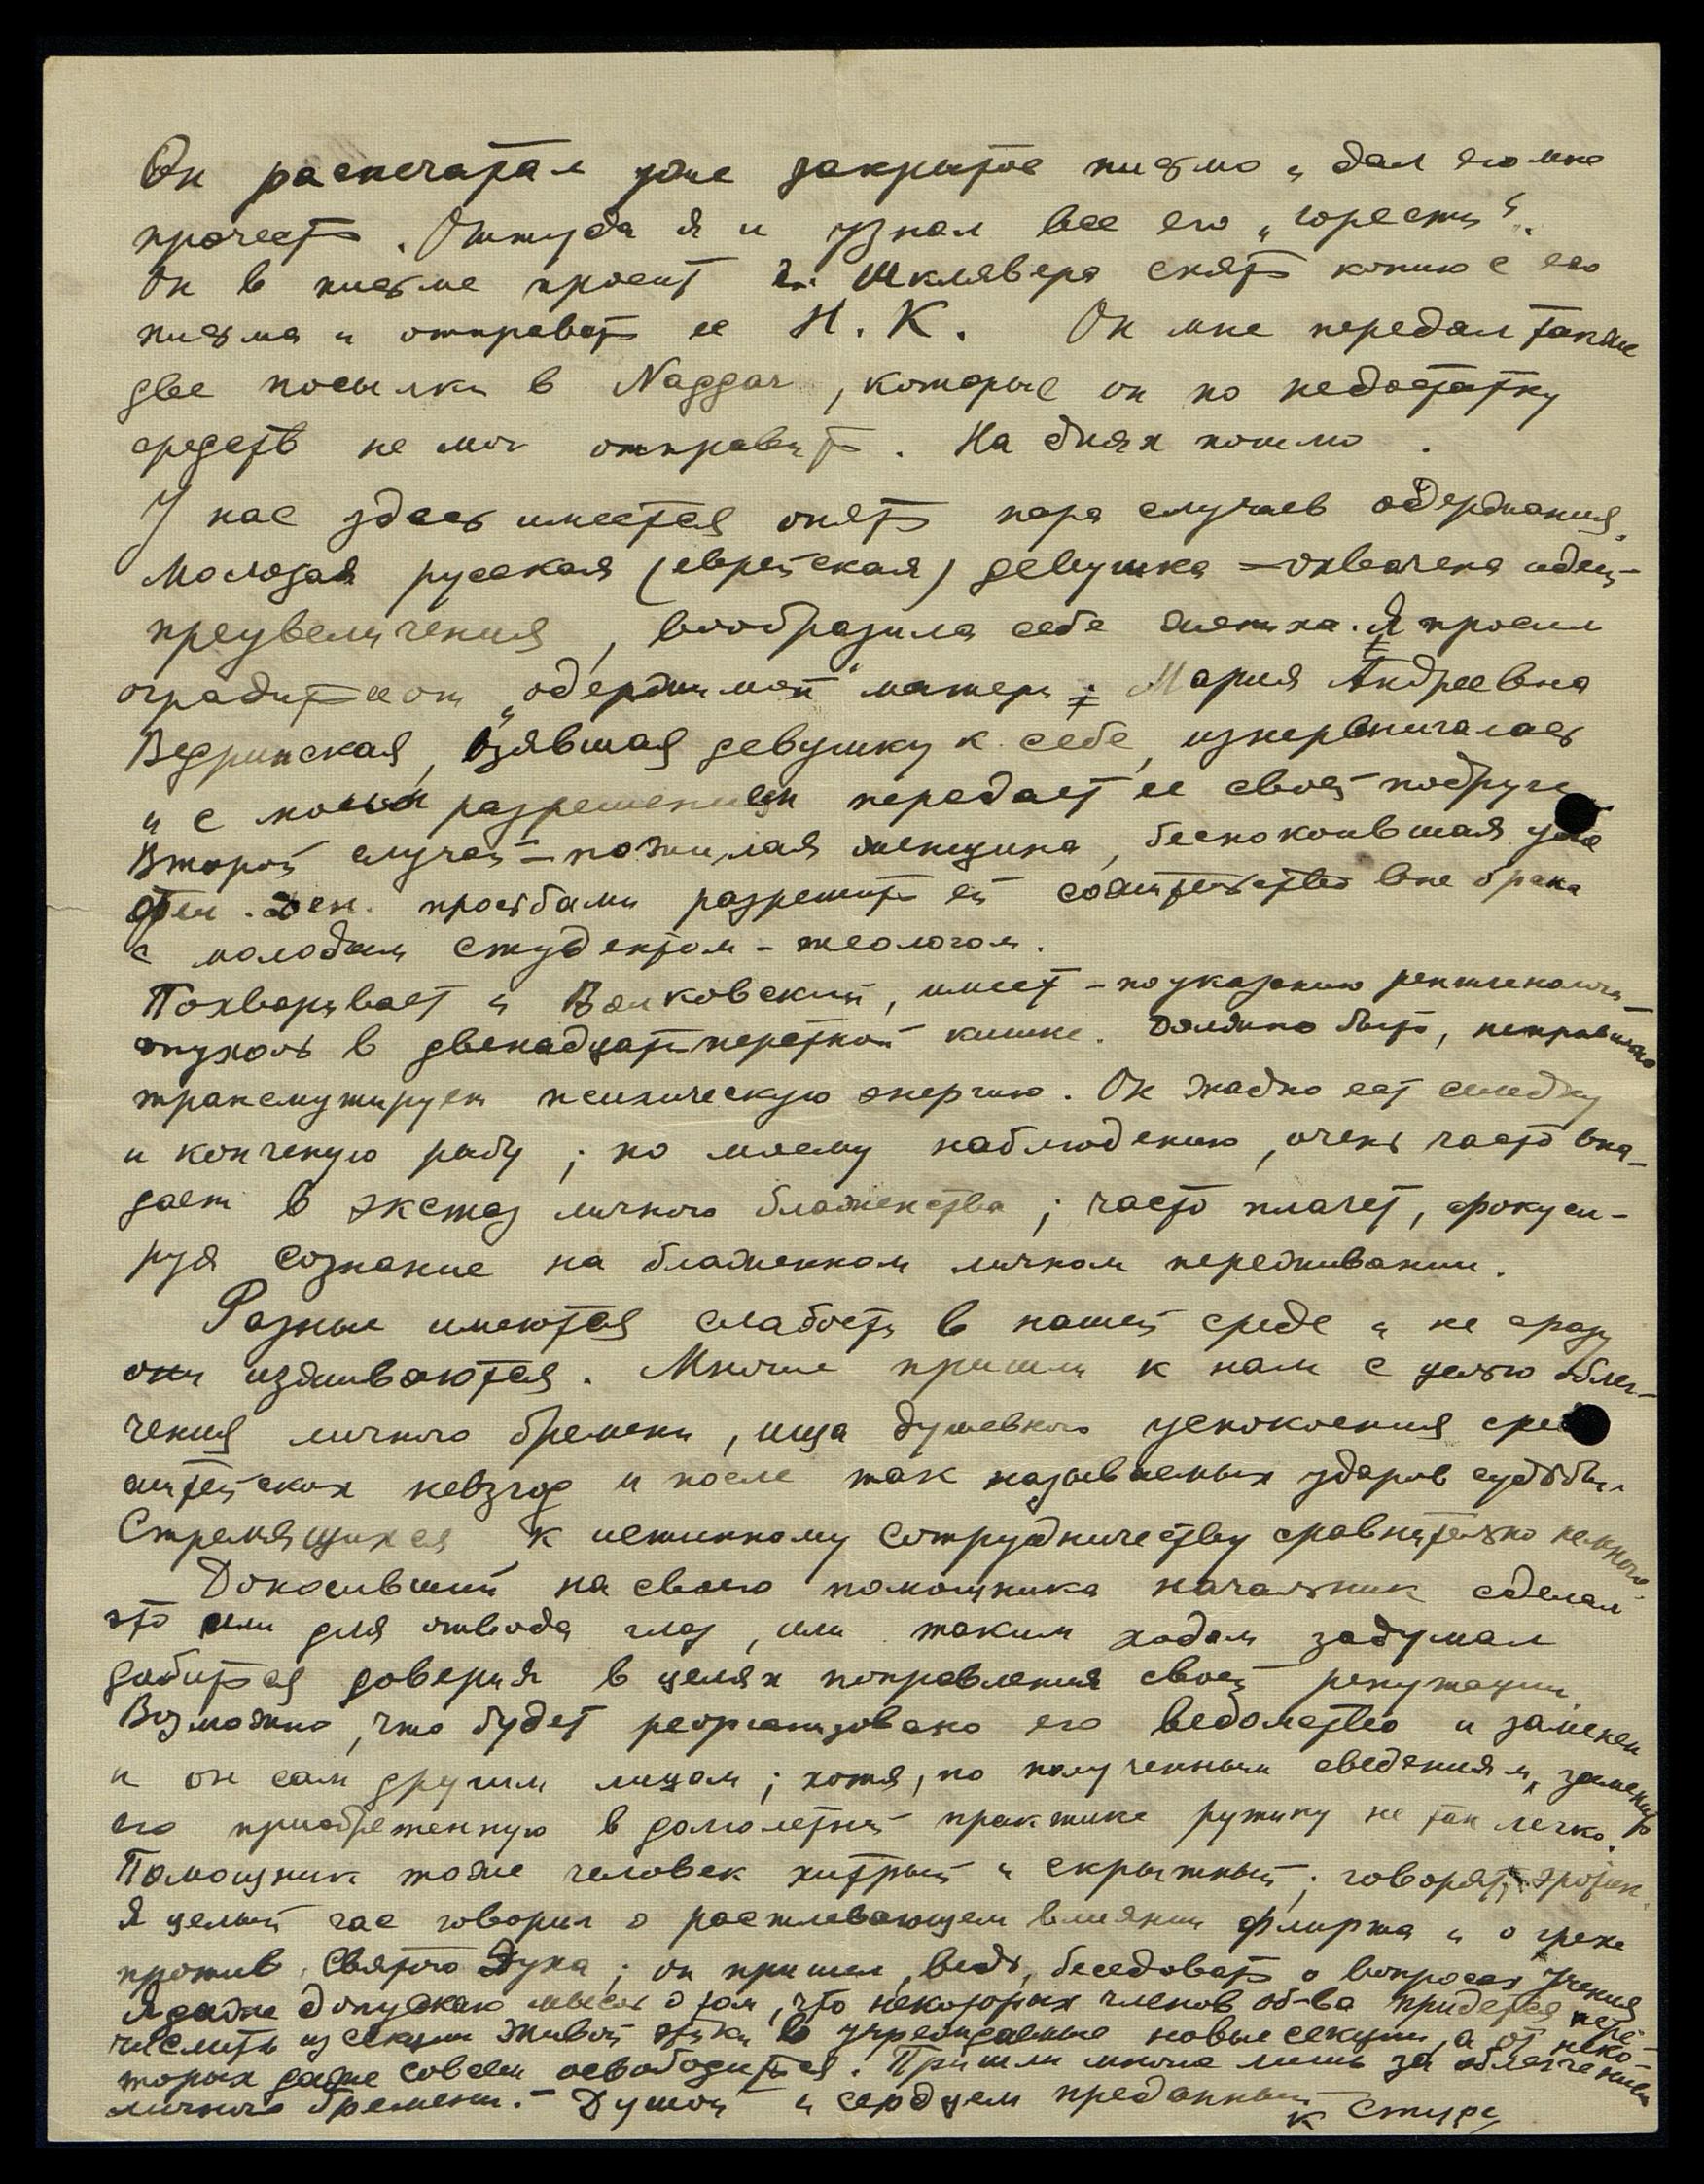 Он распечатал уже закрытое письмо и дал его мне
прочесть. Оттуда я и узнал все его „горести“.
Он в письме просит Шклявера снять копию с его
письма и отправить ее Н. К. Он мне передал также
две посылки в Naggar, которые он по недостатку
средств не мог отправить. На днях пошлю.
У нас здесь имеется опять пара случаев одержания.
Молодая русская (еврейская) девушка – охвачена идеей
преувеличения, вообразила себе жениха. Я просил
оградить ее от „одержимой“ матери; Мария Андреевна
Ведринская, взявшая девушку к себе, изнервничалась
и с моего разрешения передает ее своей подруге
Второй случай – пожилая женщина, беспокоившая уже
Фел. Ден. просьбами разрешить ей сожительство вне брака
с молодым студентом-теологом.
Похварывает и Валковский, имеет – по указанию
опухоль в двенадцатиперстной кишке. Должно быть, неправильно
трансмутирует психическую энергию. Он жадно ест селедку
и копченую рыбу; по моему наблюдению, очень часто впа-
дает в экстаз личного блаженства; часто плачет, фокуси-
руя сознание на блаженном личном переживании.
Разные имеются слабости в нашей среде и не сразу
они изживаются. Многие пришли к нам с целью облег-
чения личного бремени, ища душевного успокоения среди
житейских невзгод и после так называемых ударов судьбы.
Стремящихся к истинному сотрудничеству сравнительно немного.
Доносивший на своего помощника начальник сделал
это или для отвода глаз, или таким ходом задумал
добиться доверия в целях поправления своей репутации.
Возможно, что будет реорганизовано его ведомство и заменен
и он сам другим лицом; хотя, по полученным сведениям, заменить
его приобретенную в долголетней практике рутину не так легко.
Помощник тоже человек хитрый и скрытный; говорят, эротик.
Я целый час говорил о растлевающем влиянии флирта и о грехе
против Святого Духа; он пришел, ведь, беседовать о вопросах Учения
Я даже допускаю мысль о том, что некоторых членов об-ва придется пере-
числить из секции Живой Этики в учреждаемые новые секции, а от неко-
торых даже совсем освободиться. Пришли многие лишь за облегчением
личного бремени. – Душой и сердцем преданный
К Стуре